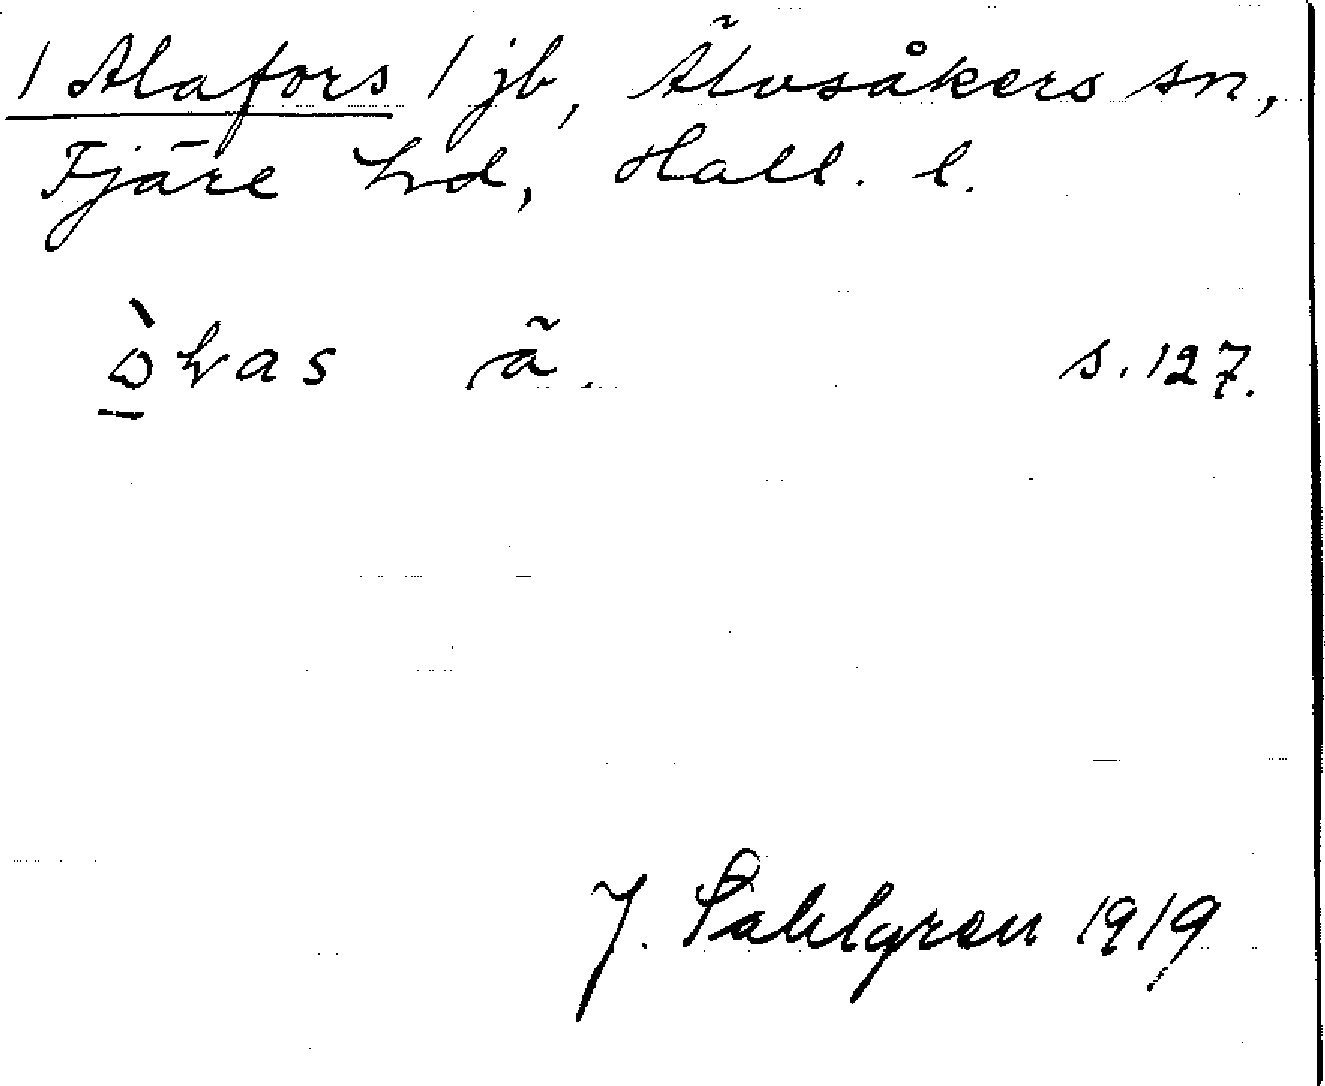 / Alafors / jb, Älvsåkers sn,
Fjäre hd, Hall. l.
ä. s. 127.
J. Sahlgren 1919